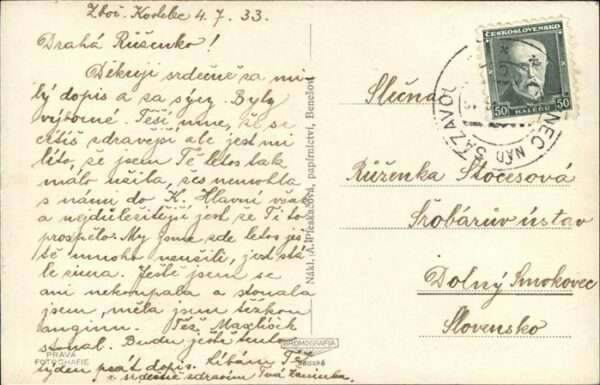 Zboř. Kostelec 4. 7. 33.
Drahá Růženko!
Děkuji srdečně za mi-
lý dopis a za sýry. Byly
výborné. Těší mne, že se
cítíš zdravější ale jest mi
líto, že jsem Tě letos tak
málo užila, žes nemohla
s námi do K. Hlavní však
a nejdůležitější jest že Ti to
prospělo. My jsme zde letos ješ-
tě mnoho neužili, jest stá-
le zima. Ještě jsem se
ani nekoupala a stonala
jsem, měla jsem těžkou
anginu. Též
stonal. Budu ještě tento
týden psát dopis. Líbám Tě
a srdečně zdravím Tvá
Nákl. A. Pleskačová, papírnictví, Benešov
PRAVÁ
FOTOGRAFIE
BROMOGRAFIA
ČESKOSLOVENSKO
50 HALÉŘŮ 50
NEC NAD SÁZAVOU
Slečna
Růženka Stočesová
Šrobárův ústav
Dolný Smokovec
Slovensko